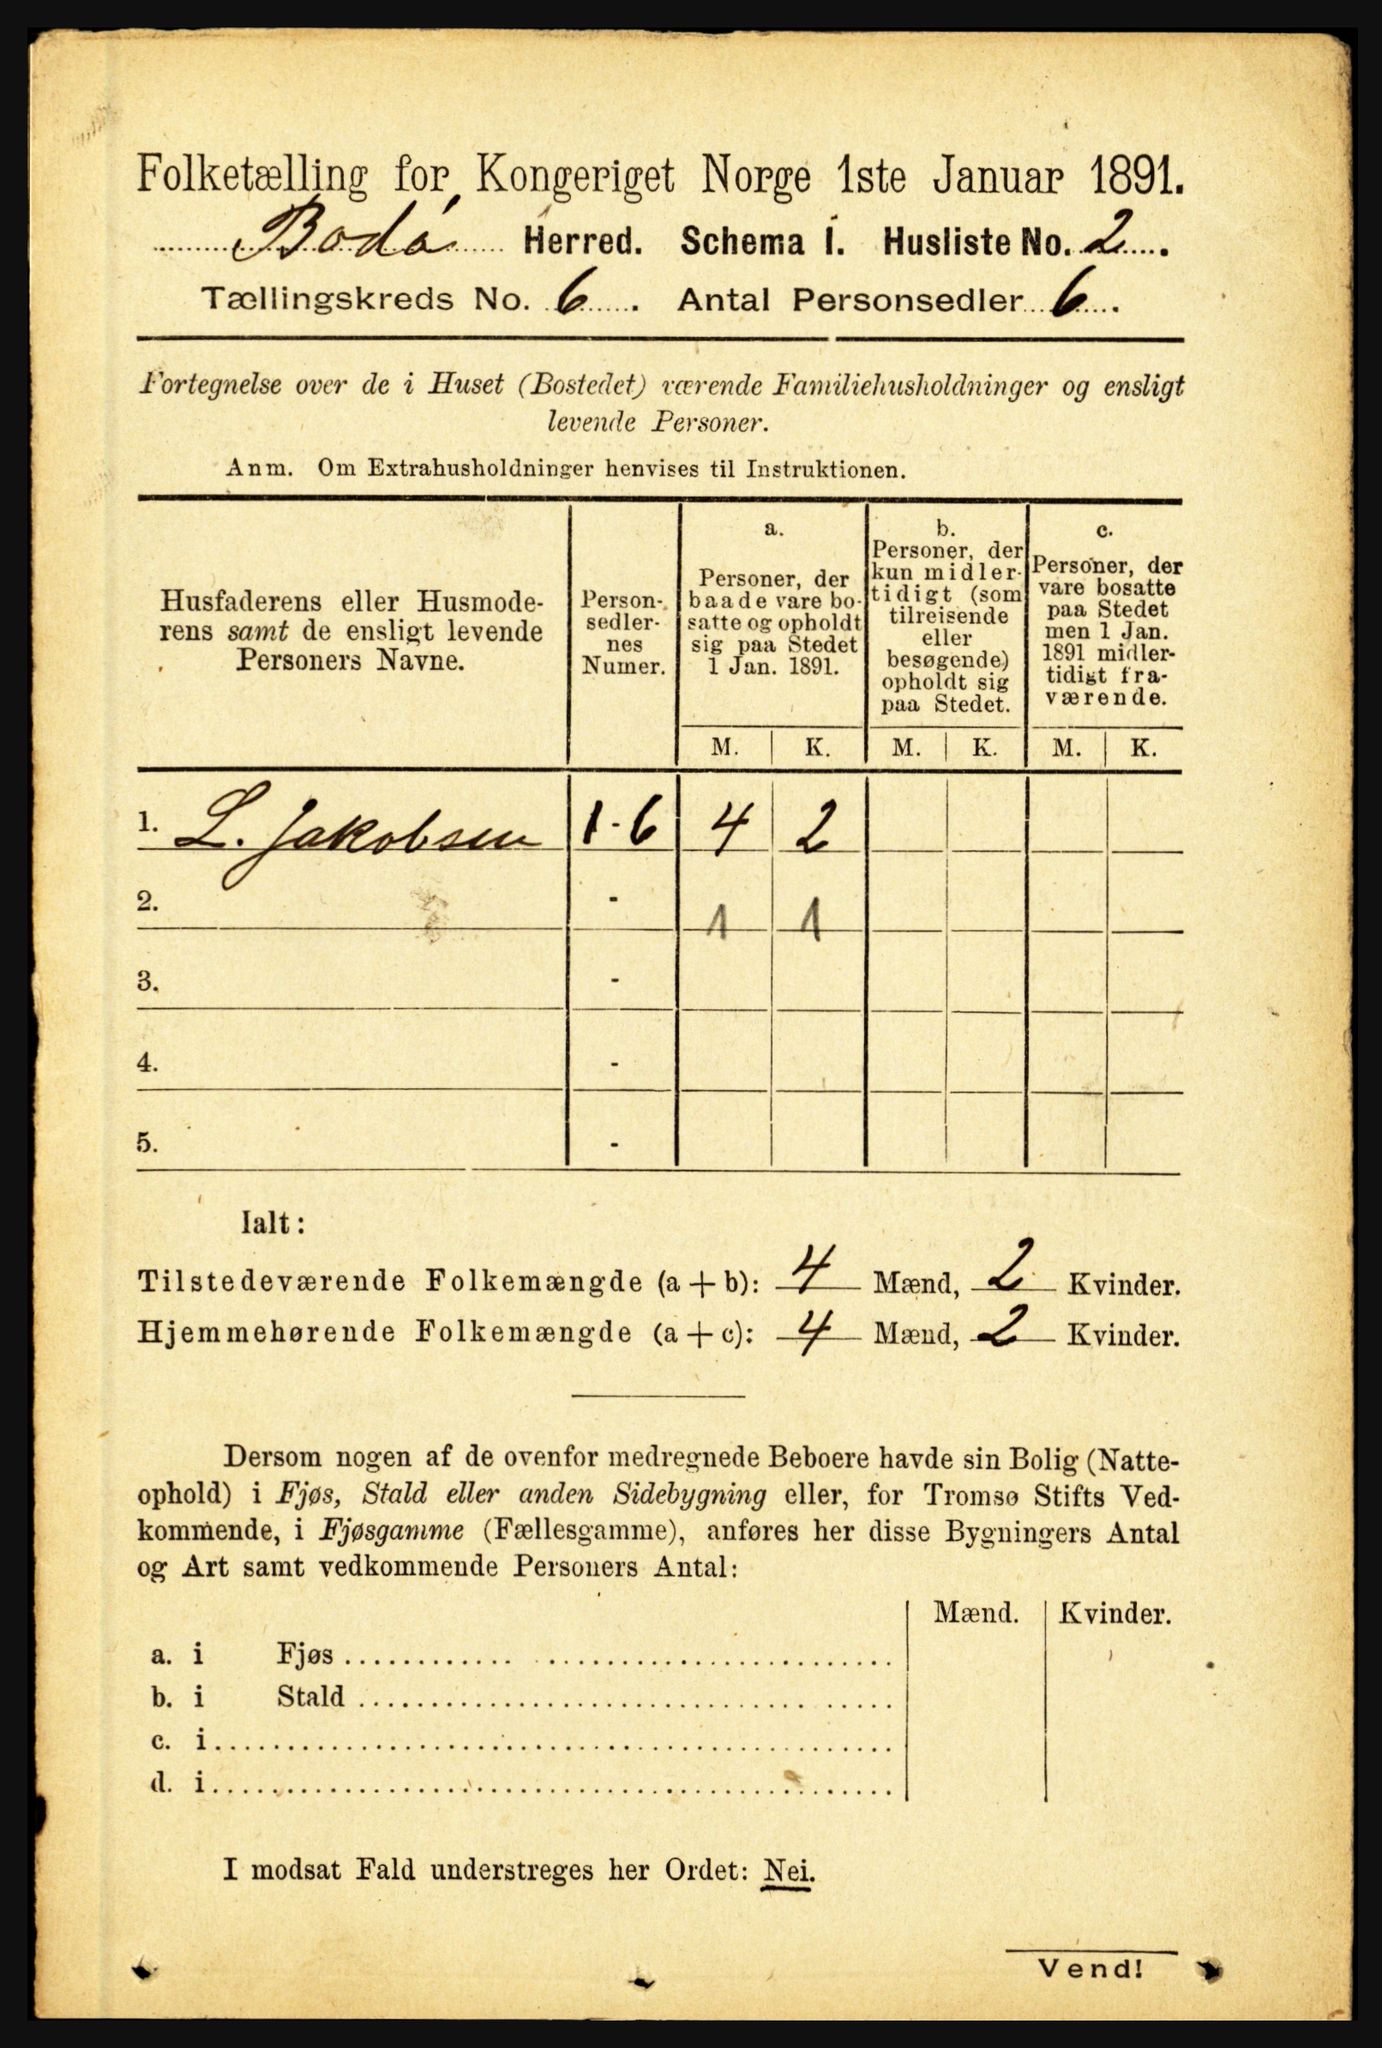 Folketælling for Kongeriget Norge 1ste Januar 1891.
Bodø Herred. Schema I. Husliste No. 2.
Tællingskreds No. 6. Antal Personsedler 6.
Fortegnelse over de i Huset (Bostedet) værende Familiehusholdninger og ensligt
levende Personer.
Anm. Om Extrahusholdninger henvises til Instruktionen.
Husfaderens eller Husmode-
rens samt de ensligt levende
Personers Navne.
Person-
sedler-
nes
Numer.
a.
Personer, der
baade vare bo-
satte og opholdt
sig paa Stedet
1 Jan. 1891.
b.
Personer, der
kun midler-
tidigt (som
tilreisende
eller
besøgende)
opholdt sig
paa Stedet.
c.
Personer, der
vare bosatte
paa Stedet
men 1 Jan.
1891 midler-
tidigt fra-
værende.
M. K. M. K. M. K.
1. L. Jakobsen 1-6 4 2
2. - 1 1
3. -
4. -
5. -
Ialt:
Tilstedeværende Folkemængde (a + b): 4 Mænd, 2 Kvinder.
Hjemmehørende Folkemængde (a + c): 4 Mænd, 2 Kvinder.
Dersom nogen af de ovenfor medregnede Beboere havde sin Bolig (Natte-
ophold) i Fjøs, Stald eller anden Sidebygning eller, for Tromsø Stifts Ved-
kommende, i Fjøsgamme (Fællesgamme), anføres her disse Bygningers Antal
og Art samt vedkommende Personers Antal:
Mænd. Kvinder.
a. i Fjøs
b. i Stald
c. i
d. i
I modsat Fald understreges her Ordet: Nei.
Vend!